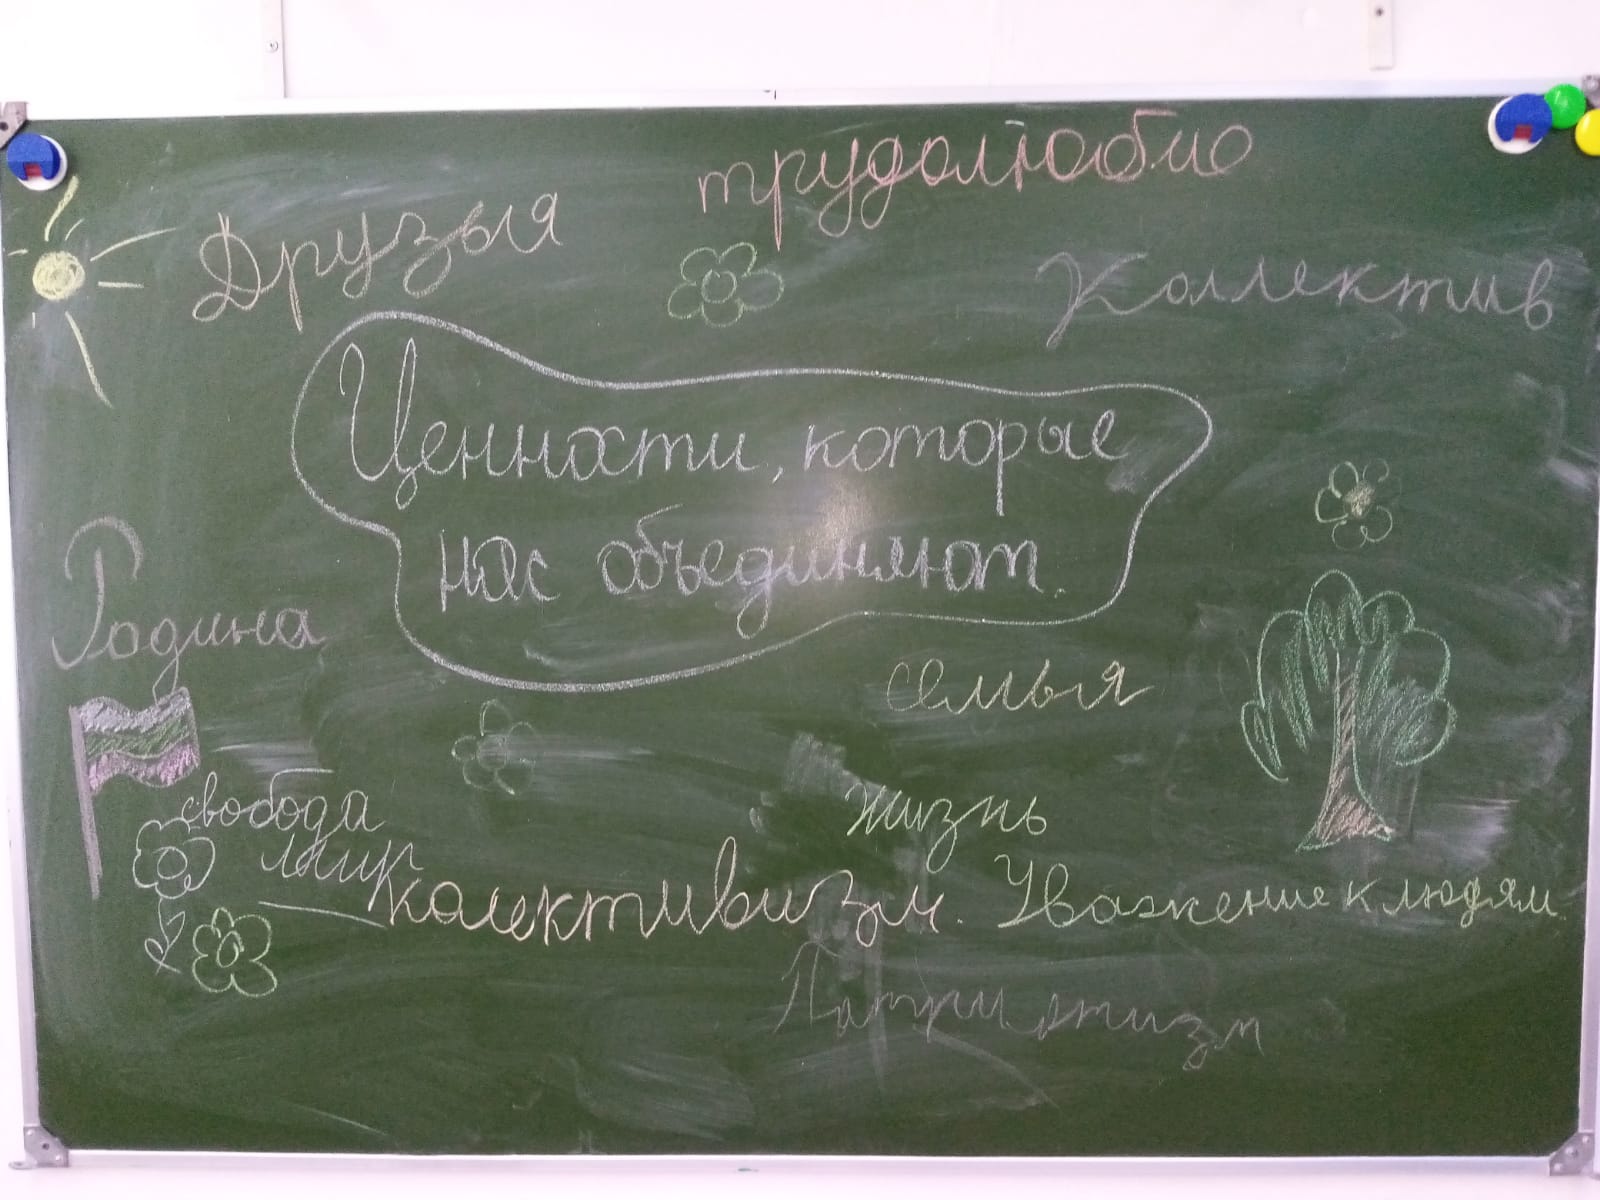 трудолюбие
Друзья
Коллектив
Ценности, которые
нас объединяют.
Родина
семья
свобода
жизнь
мир
колективизм.
Уважение к людям
Патриотизм